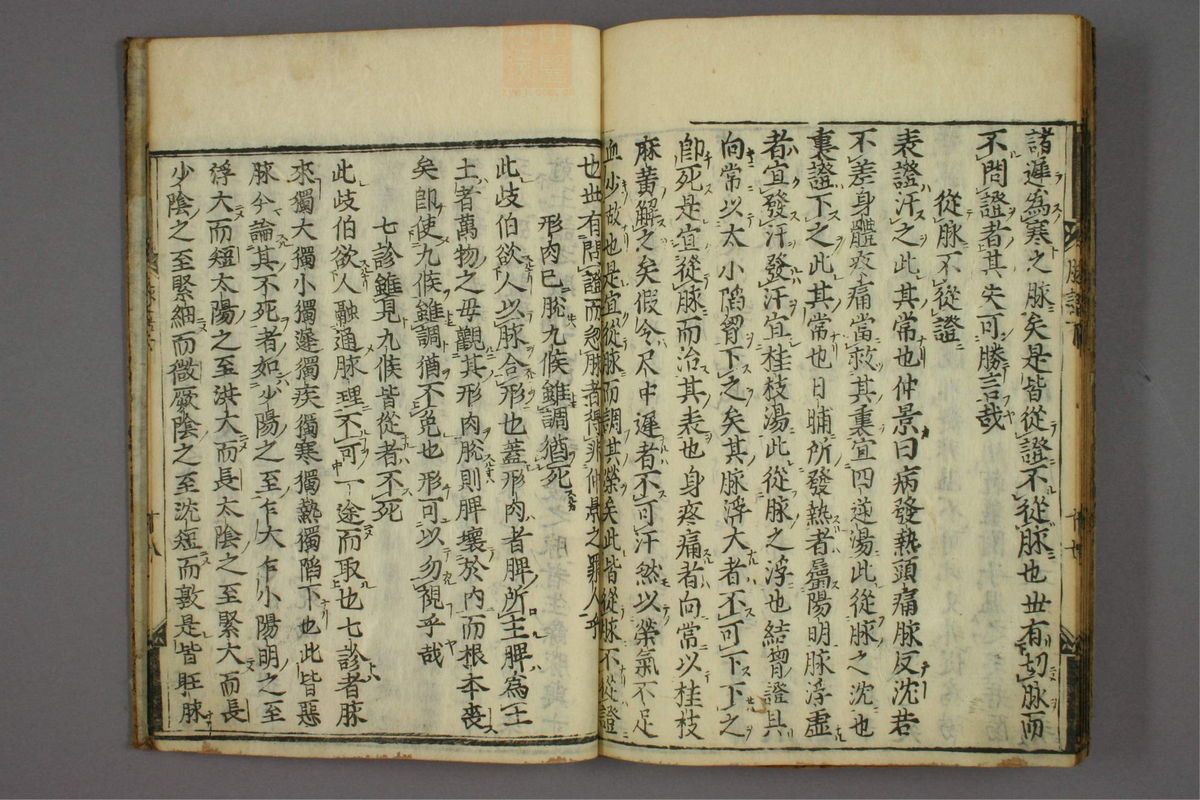 諸遲為寒之脉矣是皆從證不從脉也世有切脉而
不問證者其失可勝言哉
從脉不從證
表證汗之此其常也仲景曰病發熱頭痛脉反沈若
不差身體疼痛當救其裏宜四逆湯此從脉之沈也
裏證下之此其常也日晡所發熱者屬陽明脉浮虛
者宜發汗發汗宜桂枝湯此從脉之浮也結胷證具
向常以大小陷胷下之矣其脉浮大者不可下下之
即死是宜從脉而治其表也身疼痛者向常以桂枝
麻黃解之矣假令尺中遲者不可汗然以榮氣不足
血少故也是宜從脉而調其榮矣此皆從脉不從證
也世有問證而忽脉者得非仲景之罪人乎
形肉已脫九候雖調猶死
此歧伯欲人以脉合形也蓋形肉者脾所主脾為土
土者萬物之母觀其形肉脫則脾壞於內而根本喪
矣即使九候雖調猶不免也形可以勿視乎哉
七診雖見九候皆從者不死
此歧伯欲人融通脉理不可一途而取也七診者脉
來獨大獨小獨遲獨疾獨寒獨熱獨陷下也此皆惡
脉今論其不死者如少陽之至乍大乍小陽明之至
浮大而短太陽之至洪大而長太陰之至緊大而長
少陰之至緊細而微厥陰之至沈短而敦是皆旺脉
脉語下